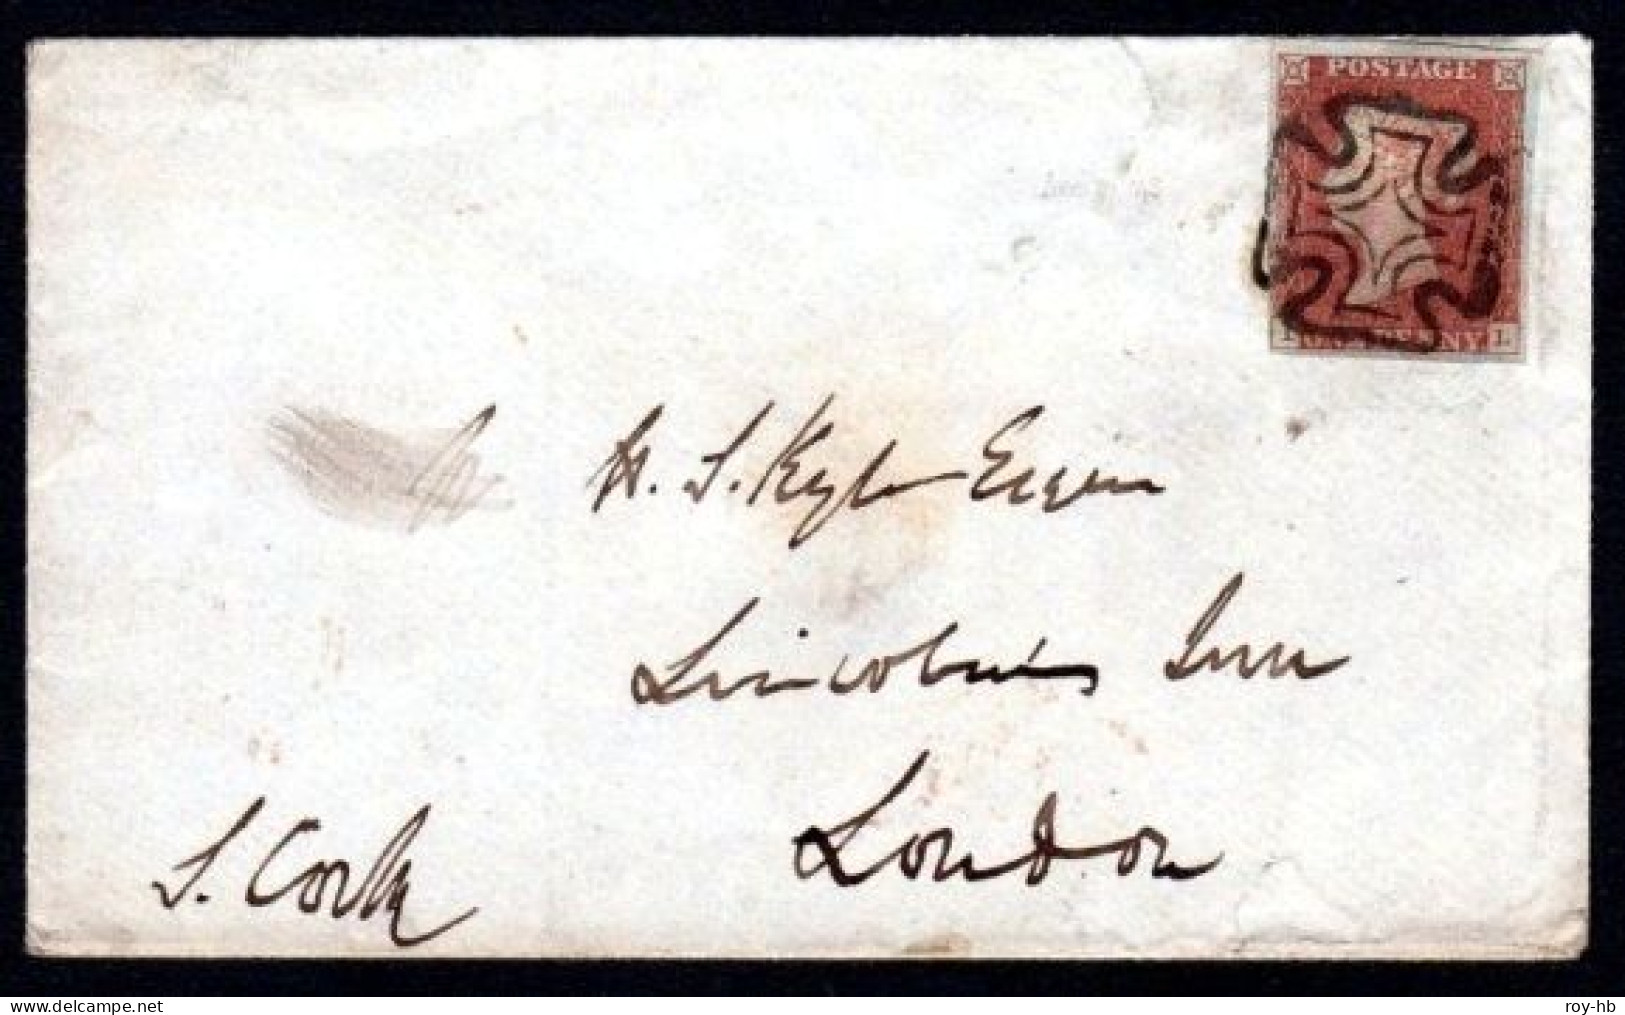 POSTAGE
PENNY L
Esqre
Lincolns Inn
London
S. Cork
delcampe.net
roy-hb